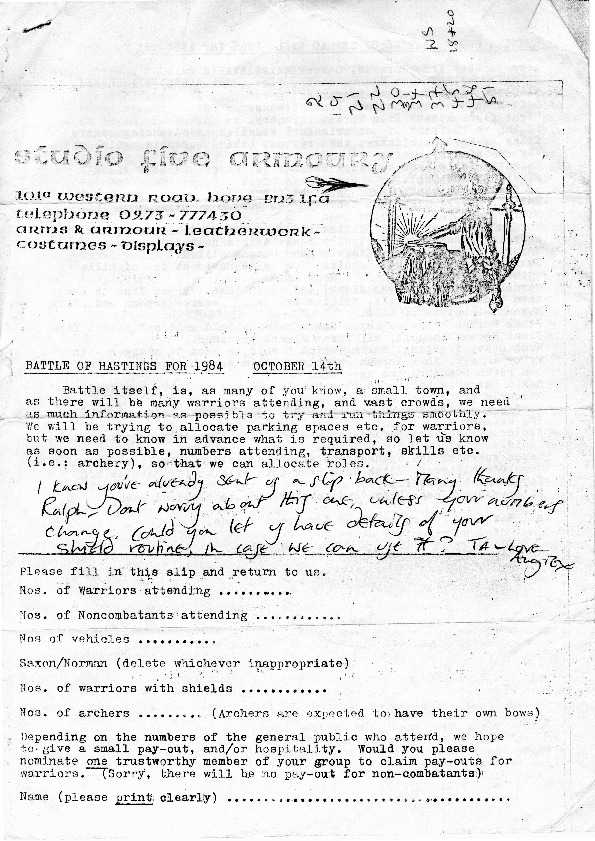 NS
18+20
STUDIO FIVE ARMOURY
101a WESTERN ROAD. HOVE BN3 1FA
telephone 0273-777430
ARMS & ARMOUR - LEATHERWORK -
COSTUMES - DISPLAYS -
BATTLE OF HASTINGS FOR 1984 OCTOBER 14th
Battle itself, is, as many of you know, a small town, and
as there will be many warriors attending, and vast crowds, we need
as much information as possible to try and run things smoothly.
We will be trying to allocate parking spaces etc. for warriors,
but we need to know in advance what is required, so let us know
as soon as possible, numbers attending, transport, skills etc.
(i.e.: archery), so that we can allocate roles.
I know you've already sent us a slip back - Many thanks
Ralph. Dont worry about this one, unless your numbers
change. Could you let us have details of your
shield routine, in case we can use it? TA - Love
Please fill in this slip and return to us.
Nos. of Warriors attending ..........
Nos. of Noncombatants attending ............
Nos of vehicles ...........
Saxon/Norman (delete whichever inappropriate)
Nos. of warriors with shields ............
Nos. of archers ......... (Archers are expected to have their own bows)
Depending on the numbers of the general public who attend, we hope
to give a small pay-out, and/or hospitality. Would you please
nominate one trustworthy member of your group to claim pay-outs for
warriors. (Sorry, there will be no pay-out for non-combatants)
Name (please print clearly) .......................................